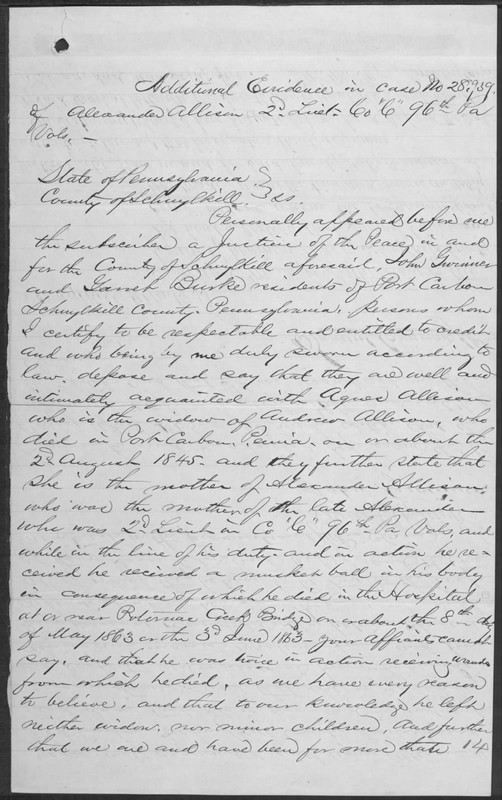 Additional Evidence in case No 28,939.
of Alexander Allison 2d Lieut. Co "C" 96th Pa
Vols. —
State of Pennsylvania }
County of Schuylkill } ss.
Personally appeared before me
the subscriber a Justice of the Peace in and
for the County of Schuylkill aforesaid, John
and Burke residents of Port Carbon
Schuylkill County, Pennsylvania, persons whom
I certify to be respectable and entitled to credit
and who being by me duly sworn according to
law, depose and say that they are well and
intimately acquainted with Agnes Allison
who is the widow of Andrew Allison, who
died in Port Carbon Penna. on or about the
2d August 1845 - and they further state that
she is the mother of Alexander Allison.
who was the mother of the late Alexander
who was 2d Lieut in Co "C" 96th Pa Vols, and
while in the line of his duty - and in action he re-
ceived he received a musket ball in his body
in consequence of which he died in the Hospital
at or near Potomac Creek Bridge on or about the 8th day
of May 1863 or the 3d June 1863 - your Affiants cannot
say, and that he was twice in action receiving wounds
from which he died, as we have every reason
to believe, and that to our knowledge he left
neither widow, nor minor children, and further
that we are and have been for more than 14